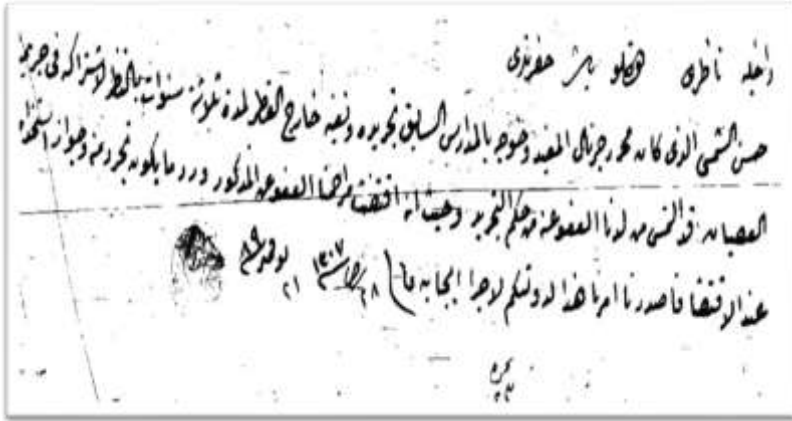 داخليه ناظرى دولتلو باشا حضرتلرى
حسن الشمسى الذى كان محرر جرنال المفيد وخوجه بالمدارس السابق تجريده ونفيه خارج القطر لمدة ثلاثة سنوات بالنظر لاشتراكه فى جريمة
العصيان قد التمس من لدنا العفو عنه من حكم التجريد وحيث انه اقتضت مراحمنا العفو عن المذكور ورد ما يكون تجرد منه وجواز استخدامه
عند الاقتضا فاصدرنا امرنا هذا لدولتكم لاجرا ايجابه فى ٢٨ سنة ١٣٠٧ ٢١ نوفمبر ٨٩
نمرة
٢٣